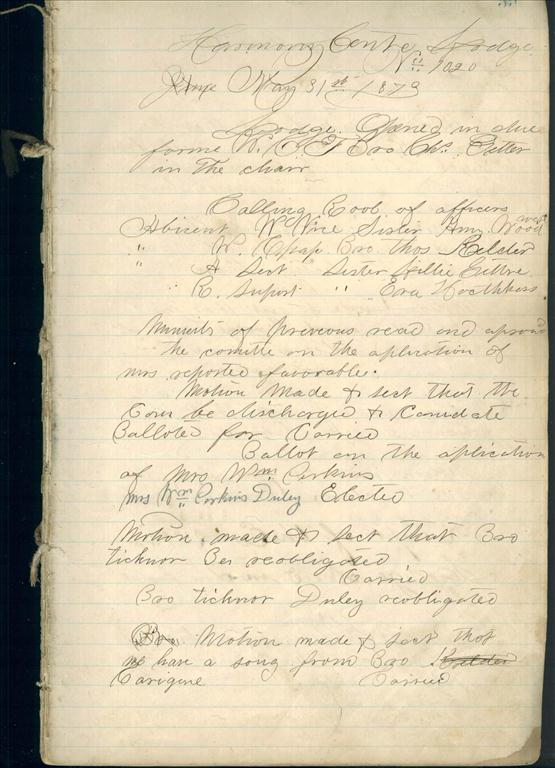 Harmony Centre Lodge
No 1020
May 31st 1879
Lodge Opened in due
forme W. C. T Bro Chs. Cutter
in the chair
Calling Roob of officers
Abicent W. Vice Sister Amy Wood
" W. Chap Bro thos
" A Sect Sister Lillie
" R. Suport " Eva Hocthkiss
Minuits of preveous read and
the comitte on the aplication of
mrs reported favorable.
Motion Made & sect that the
Com be discharged & Canidate
Balloted for Carried
Ballot on the aplication
of Mrs Wm. Perkins
Mrs Wm Perkins Duley Elected
Motion. made & sect that Bro
ticknor Be reobligated
Carried
Bro ticknor Duley reobligated
Motion made & sect that
we have a song from Bro
Carigene Carried